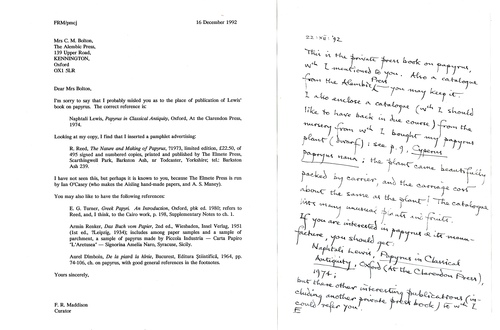 FRM/pmcj
16 December 1992
Mrs C. M. Bolton,
The Alembic Press,
139 Upper Road,
KENNINGTON,
Oxford
OX1 5LR
Dear Mrs Bolton,
I'm sorry to say that I probably misled you as to the place of publication of Lewis'
book on papyrus. The correct reference is:
Naphtali Lewis, Papyrus in Classical Antiquity, Oxford, At the Clarendon Press,
1974.
Looking at my copy, I find that I inserted a pamphlet advertising:
R. Reed, The Nature and Making of Papyrus, ?1973, limited edition, £22.50, of
495 signed and numbered copies, printed and published by The Elmete Press,
Scarthingwell Park, Barkston Ash, nr Tadcaster, Yorkshire; tel: Barkston
Ash 239.
I have not seen this, but perhaps it is known to you, because The Elmete Press is run
by Ian O'Casey (who makes the Aisling hand-made papers, and A. S. Maney).
You may also like to have the following references:
E. G. Turner, Greek Papyri. An Introduction, Oxford, pbk ed. 1980; refers to
Reed, and, I think, to the Cairo work, p. 198, Supplementary Notes to ch. 1.
Armin Renker, Das Buch vom Papier, 2nd ed., Wiesbaden, Insel Verlag, 1951
(1st ed., ?Leipzig, 1934); includes among paper samples and a sample of
parchment, a sample of papyrus made by Piccola Industria — Carta Papiro
"L'Aretusea" — Signorina Amelia Naro, Syracuse, Sicily.
Aurel Dîmboiu, De la piatră la hîrtie, Bucarest, Editura Științifică, 1964, pp.
74-106, ch. on papyrus, with good general references in the footnotes.
Yours sincerely,
F. R. Maddison
Curator
22·XII·'92
This is the private press book on papyrus,
wh I mentioned to you. Also a catalogue
from the Alembic Press — you may keep it.
I also enclose a catalogue (wh I should
like to have back in due course) from the
nursery from wh I bought my papyrus
plant (dwarf): see p. 9, Cyperus
papyrus nana; the plant came beautifully
packed by carrier, and the carriage cost
about the same as the plant! The catalogue
lists many unusual plants and fruits.
If you are interested in papyrus & its manu-
facture, you should get
Naphtali Lewis, Papyrus in Classical
Antiquity, Oxford (At the Clarendon Press),
1974;
but there are other interesting publications (in-
cluding another private press book) to wh I
could refer you.